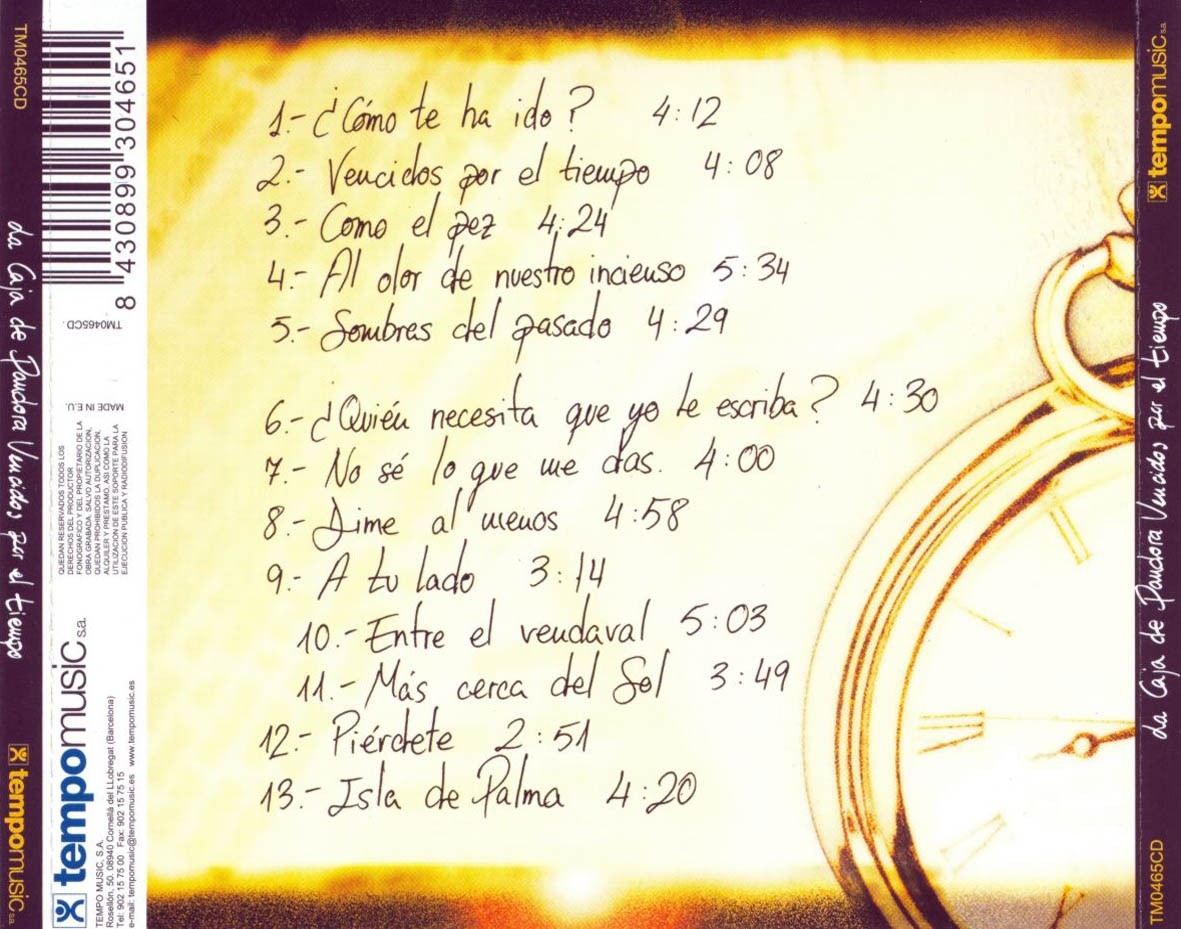 1.- ¿Cómo te ha ido? 4:12
2.- Vencidos por el tiempo 4:08
3.- Como el pez 4:24
4.- Al olor de nuestro incienso 5:34
5.- Sombras del pasado 4:29
6.- ¿Quién necesita que yo le escriba? 4:30
7.- No sé lo que me das. 4:00
8.- Dime al menos 4:58
9.- A tu lado 3:14
10.- Entre el vendaval 5:03
11.- Más cerca del Sol 3:49
12.- Piérdete 2:51
13.- Isla de Palma 4:20
TM0465CD
La Caja de Pandora Vencidos por el tiempo
tempomusic s.a.
8 430899 304651
TM0465CD.
MADE IN E.U.
QUEDAN RESERVADOS TODOS LOS
DERECHOS DEL PRODUCTOR
FONOGRAFICO Y DEL PROPIETARIO DE LA
OBRA GRABADA. SALVO AUTORIZACION,
QUEDAN PROHIBIDOS LA DUPLICACION,
ALQUILER Y PRESTAMO, ASI COMO LA
UTILIZACION DE ESTE SOPORTE PARA LA
EJECUCION PUBLICA Y RADIODIFUSION
tempomusic s.a.
TEMPO MUSIC, S.A.
Rosellón, 50. 08940 Cornellá del LLobregat (Barcelona)
Tel: 902 15 75 00 Fax: 902 15 75 15
e-mail: tempomusic@tempomusic.es www.tempomusic.es
tempomusic s.a.
La Caja de Pandora Vencidos por el tiempo
TM0465CD